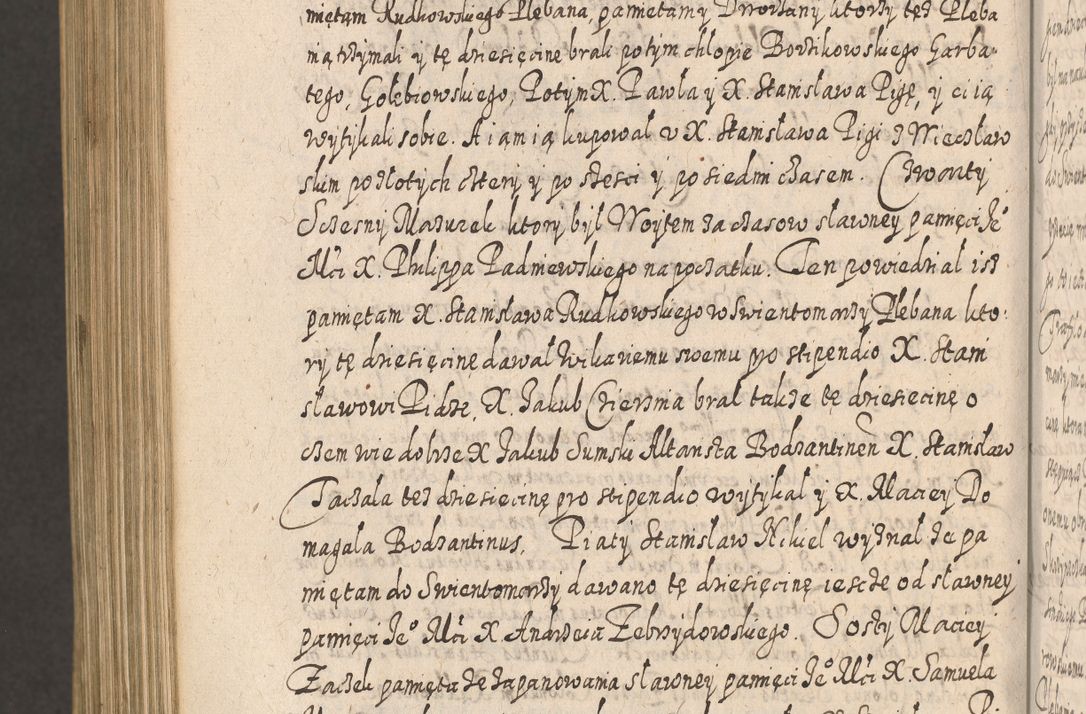 miętam Rudkowskiego Plebana, pamietamy Dworzany ktorzy tes Pleba
nią trzymali y tę dziesięcine brali potym chlopie Borzikowskiego Garba
tego, Gołębiowskiego, Potym X. Pawla y X. Stanisława Pigę, y ci ią
wytykali sobie. A iam ią kupował v X. Stanisława Pigi z Wiecsław
skim po złotych cztery y po szesci y po siedmi czasem. Czwarty
Sczesny Mazurek ktory był Woytem za czasow sławney pamięci Je°
Mci X. Philippa Padniewskiego na początku. Ten powiedzial isz
pamiętam X. Stanisława Rudkowskiego w Swientomarzy Plebana kto:
ry tę dziesięcinę dawał Wikariemu swoemu pro stipendio X. Stani
sławowi Pidze, X. Jakub Czierznia brał takze tę dziesiecinę o
czem wie dobrze X Jakub Sumski Altarista Bodzantinen X. Stanisław
Taczala tesz dziesiecinę pro stipendio wytykal y X. Maciey Do
magala Bodzantinus, Piaty Stanislaw Nikiel wyznał ze pa
miętam do Swientomarzy dawano tę dziesięcinę iescze od sławney
pamięci Je° Mci X Andrzeia Zebrzydowskiego. Sosty Maciey
Zaczek pamięta ze za panowania sławney pamięci Je° Mci X. Samuela